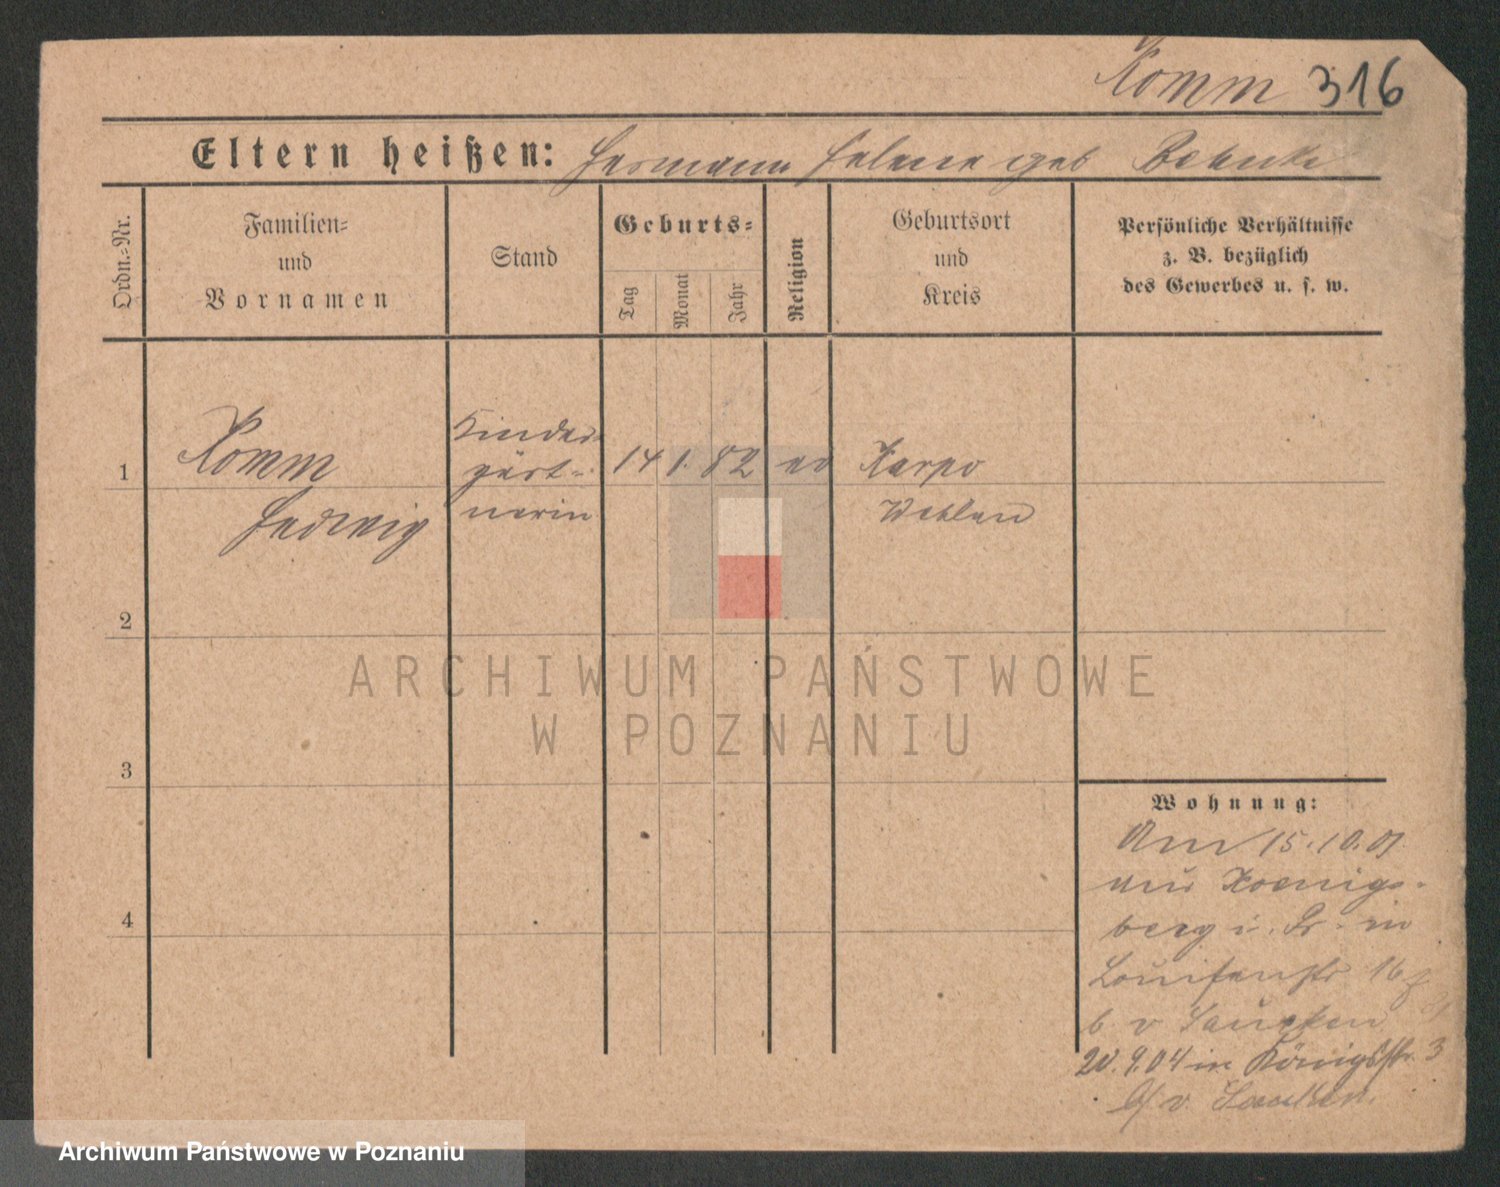 Komm 316
Eltern heißen: Hermann Helene geb
Ordn.-Nr.
Familien-
und
Vornamen
Stand
Geburts-
Tag
Monat
Jahr
Religion
Geburtsort
und
Kreis
Persönliche Verhältnisse
z. B. bezüglich
des Gewerbes u. s. w.
1
Komm
Hedwig
Kinder-
gärt-
nerin
14 1. 82 ev
Karpo
Wehlau
2
3
4
Wohnung:
Am 15.10.01
aus Koenigs-
berg i. Pr. in
Louisenstr 16
b v Saucken
20.9.04 in Königsstr. 3
b/ v. Saucken.
ARCHIWUM PAŃSTWOWE
W POZNANIU
Archiwum Państwowe w Poznaniu